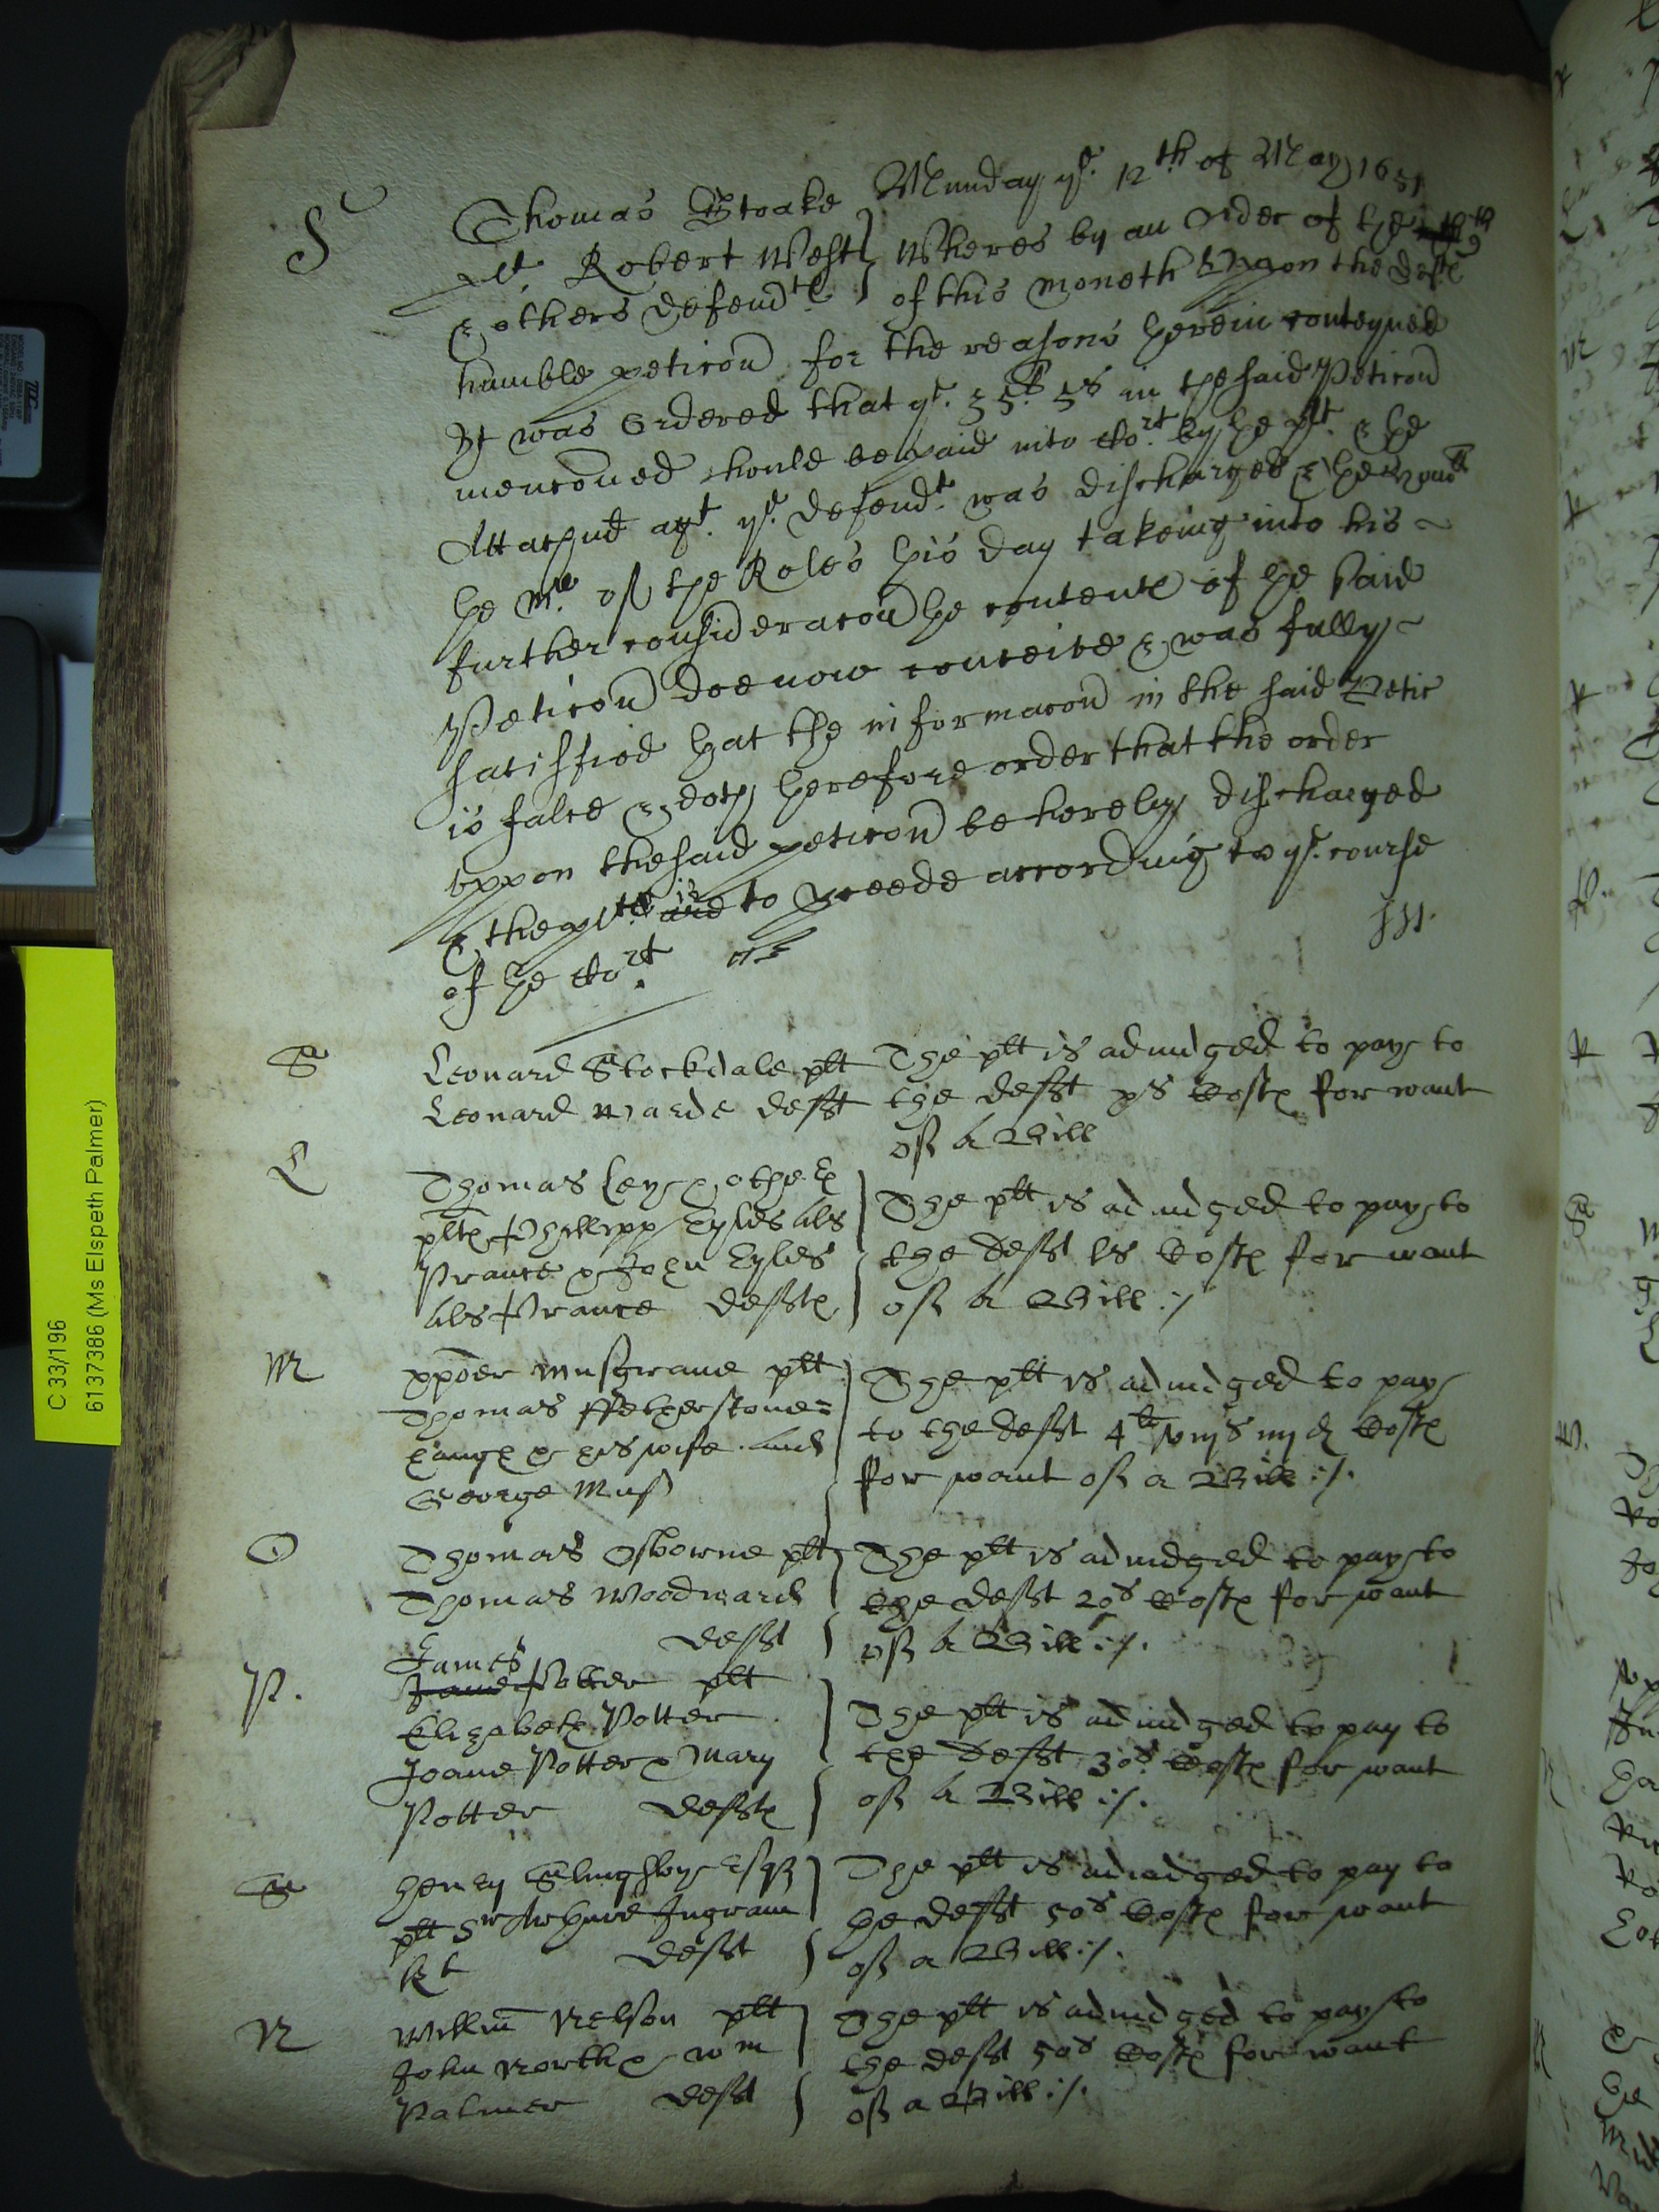 Munday ye. 12th of May 1651
S Thomas Stoake
plt. Robert West } Wheres by an Order of the 9th
& others defendtes } of this moneth Uppon the deftes
humble peticon for the reasons herein conteyned
It was Ordered that ye. 35li. 5s in the said Peticon
mencioned should be paid into Cort by the plt. & the
Attachmt agt. ye. defendt. was discharged &
the Mr. of the Roles this day takeing into his
further consideracon the contentes of the said
Peticon doe now conceive & was fully
satisfied that the informacon in the said Petic
is false & doth therefore order that the order
uppon the said peticon be hereby discharged
& the plt is are to proceede according to ye. course
of the Cort.
S Leonard Stockdale plt The plt is adiudged to pay to
Leonard Warde defft the defft xs Costes for want
of a Bill
L Thomas Ley & others
pltes Phillipp Eyles als } The plt is adiudged to pay to
Prance & John Eyles } the defft ls Costes for want
als Prance defftes } of a Bill :/
M xpoer Musgrave plt } The plt is adiudged to pay
Thomas ffetherstone= } to the defft 4li viijs iiijd Costes
haugh & his wife and } for want of a Bill :/.
George Mus
O Thomas Osborne plt } The plt is adiudged to pay to
Thomas Woodward } the defft 20s Costes for want
defft } of a Bill :/.
James
P. Jane Potter plt
Elizabeth Potter } The plt is adiudged to pay to
Joane Potter & Mary } the defft 30s Costes for want
Potter defftes } of a Bill :/.
S Henry Slingsby Esqr } The plt is adiudged to pay to
plt Sr Arthure Ingram } the defft 50s Costes for want
Kt defft } of a Bill :/.
N Willm Nelson plt } The plt is adiudged to pay to
John North & Wm } the defft 50s Costes for want
Palmer defft } of a Bill :/.
C 33/196
6137386 (Ms Elspeth Palmer)